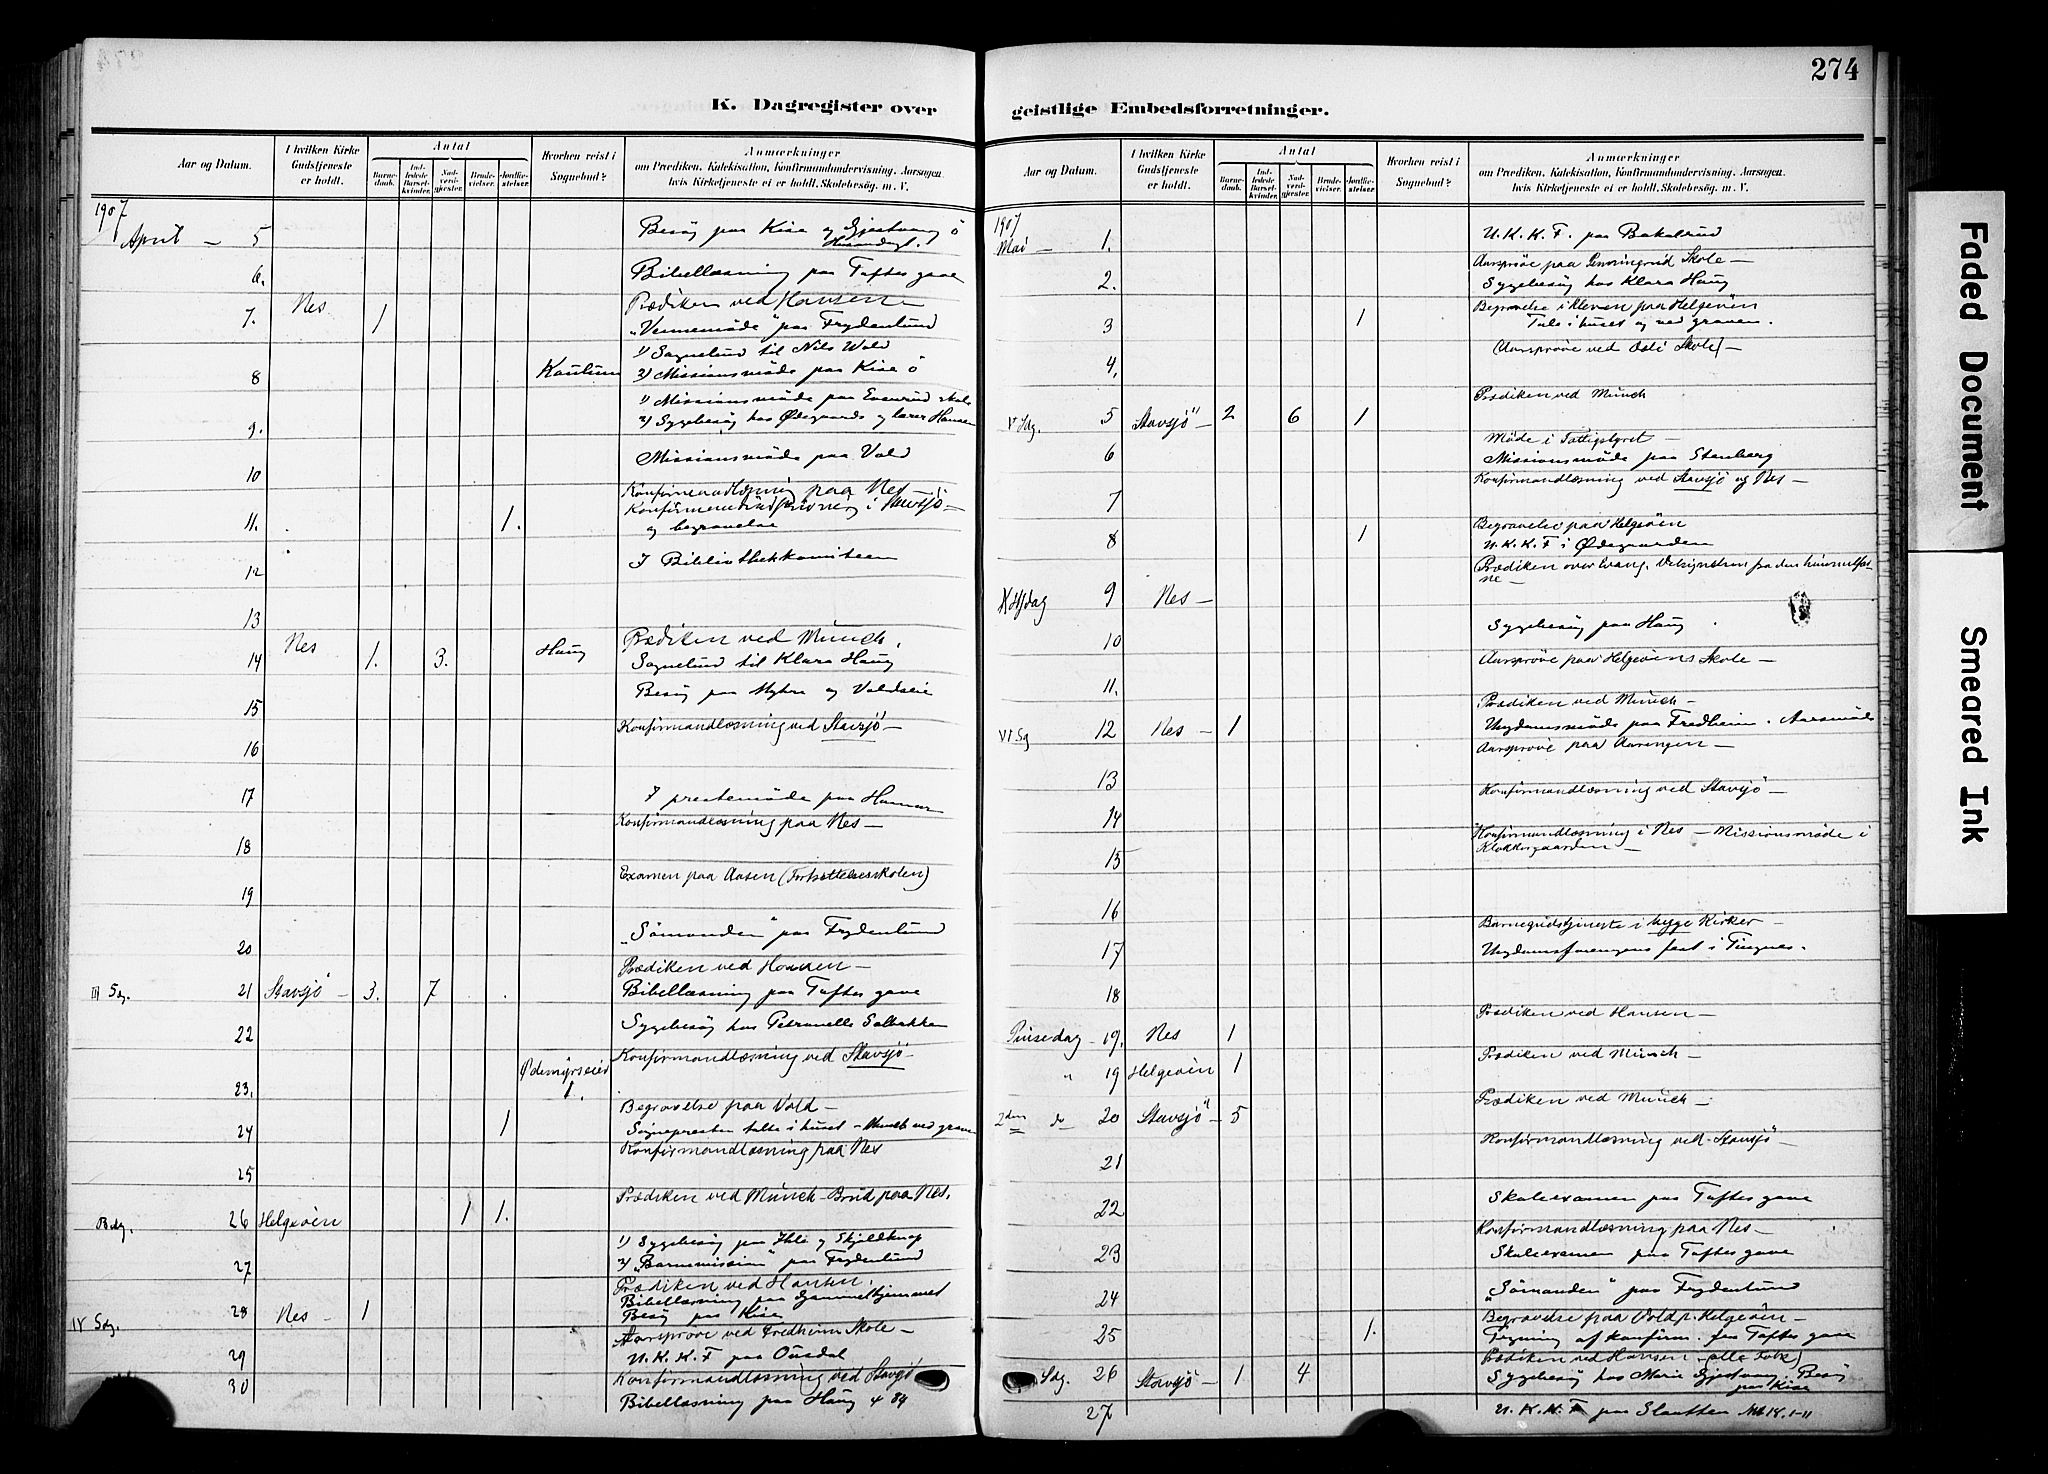 274
K. Dagregister over
geistlige Embedsforretninger.
Aar og Datum.
I hvilken Kirke Gudstjeneste er holdt.
Antal
Barnedaab.
Indledede Barselkvinder.
Nadverdgjester.
Brudevielser.
Jordfæstelser.
Hvorhen reist i Sognebud?
Anmærkninger
om Prædiken, Katekisation, Konfirmandundervisning, Aarsagen,
hvis Kirketjeneste ei er holdt, Skolebesøg, m. V.
1907
April - 5 Besøg paa Kise og Gjestvang ö
6. Bibellæsning paa Toftes gave
7. Nes 1 Prædiken ved Hansen
"Vennemöde" paa Frydenlund
1) Sognebud til Nils Wold
8 2) Missionsmöde paa Kise ö
1) Missionsmöde paa Evenrud skole
9. 2) Sygebesög hos Ødegaards og lærer Hansen
10 Missionsmöde paa Vold
Konfirmandlæsning paa Nes
11. 1. Konfirmandindskrivning i Stavsjö -
og begravelse
12 I Bibliothekkomiteen
13
Prædiken ved Münch.
14 Nes 1. 3. Haug Sognebud til Klara Haug
15 Besög paa Myhre og Voldseie
16 Konfirmandlæsning ved Stavsjö -
17 I prestemöde paa Hamar
18 Konfirmandlæsning paa Nes -
19 Examen paa Aasen (Fortsættelsesskolen)
20 "Sömanden" paa Frydenlund
Prædiken ved Hansen -
III Sdg. 21 Stavsjö - 3. 7 Bibellæsning paa Toftes gave
22 Sygebesög hos Petronelle Solbakken
23. Ødemyrseier 1. Konfirmandlæsning ved Stavsjö -
Begravelse paa Vold -
24 1 Sognepresten talte i huset - Münch ved graven
25 Konfirmandlæsning paa Nes
Bdg. 26 Helgeöen 1 1. Prædiken ved Münch - Brud paa Nes.
1) Sygebesög paa Ihle og Skjeldknap
27 2) "Barnemission" paa Frydenlund
Prædiken ved Hansen.
Bibellæsning paa Gammelhjemmet
IV Sdg. 28 Nes - 1 Besög paa Kise
Aarspröve ved Fredheim Skole -
29 U. K. K. F paa Ousdal
30 Konfirmandlæsning ved Stavsjö
Bibellæsning paa Haug
Aar og Datum.
I hvilken Kirke Gudstjeneste er holdt.
Antal
Barnedaab.
Indledede Barselkvinder.
Nadverdgjester.
Brudevielser.
Jordfæstelser.
Hvorhen reist i Sognebud?
Anmærkninger
om Prædiken, Katekisation, Konfirmandundervisning, Aarsagen,
hvis Kirketjeneste ei er holdt, Skolebesøg, m. V.
1907
Mai - 1. U. K. K. F. paa Bakelrud
Aarspröve paa Skole -
2. Sygebesög hos Klara Haug
Begravelse i Kleven paa Helgeöen
3 1 Tale i huset og ved graven.
4. Aarspröve ved Skole -
V Sdg. 5 Stavsjö 2 6 1 Prædiken ved Münch
Möde i Fattigstyret -
6 Missionsmöde paa Stenberg
7 Konfirmandlæsning ved Stavsjö og Nes -
Begravelse paa Helgeöen
8 1 U. K. K. F i Ødegaarden
Prædiken over Evang. Velsignelsen fra den himmelfarne -
9 Nes -
10 Sygebesög paa Haug
11. Aarspröve paa Helgeöens Skole -
Prædiken ved Münch -
VI Sg 12 Nes - 1 Ungdomsmöde paa Fredheim. Aarsmöde
13 Aarspröve paa Aarengen -
14 Konfirmandlæsning ved Stavsjö -
15 Konfirmandlæsning i Nes - Missionsmöde i
Klokkergaarden -
16
Barnegudstjeneste i begge Kirker -
17 Ungdomsforeningens fest i Tingnes.
18
Pinsedag - 19. Nes 1 Prædiken ved Hansen -
" 19 Helgeöen 1 Prædiken ved Münch -
2den do 20 Stavsjö - 5 Prædiken ved Münch -
21 Konfirmandlæsning ved Stavsjö -
22 Skoleexamen paa Toftes gave
Konfirmandlæsning paa Nes -
23 Skoleexamen paa Toftes gave
24 "Sömanden" paa Frydenlund
Begravelse paa Vold p. Helgeöen -
25 1. af konfirm. fra Toftes gave
Prædiken ved Hansen -
Sdg. 26 Stavsjö - 1 4 Sygebesög hos Marie Gjestvang. Besög
paa Kise
27 U. K. K. F paa Slaatten Mt 18. 1-11
Faded Document
Smeared Ink